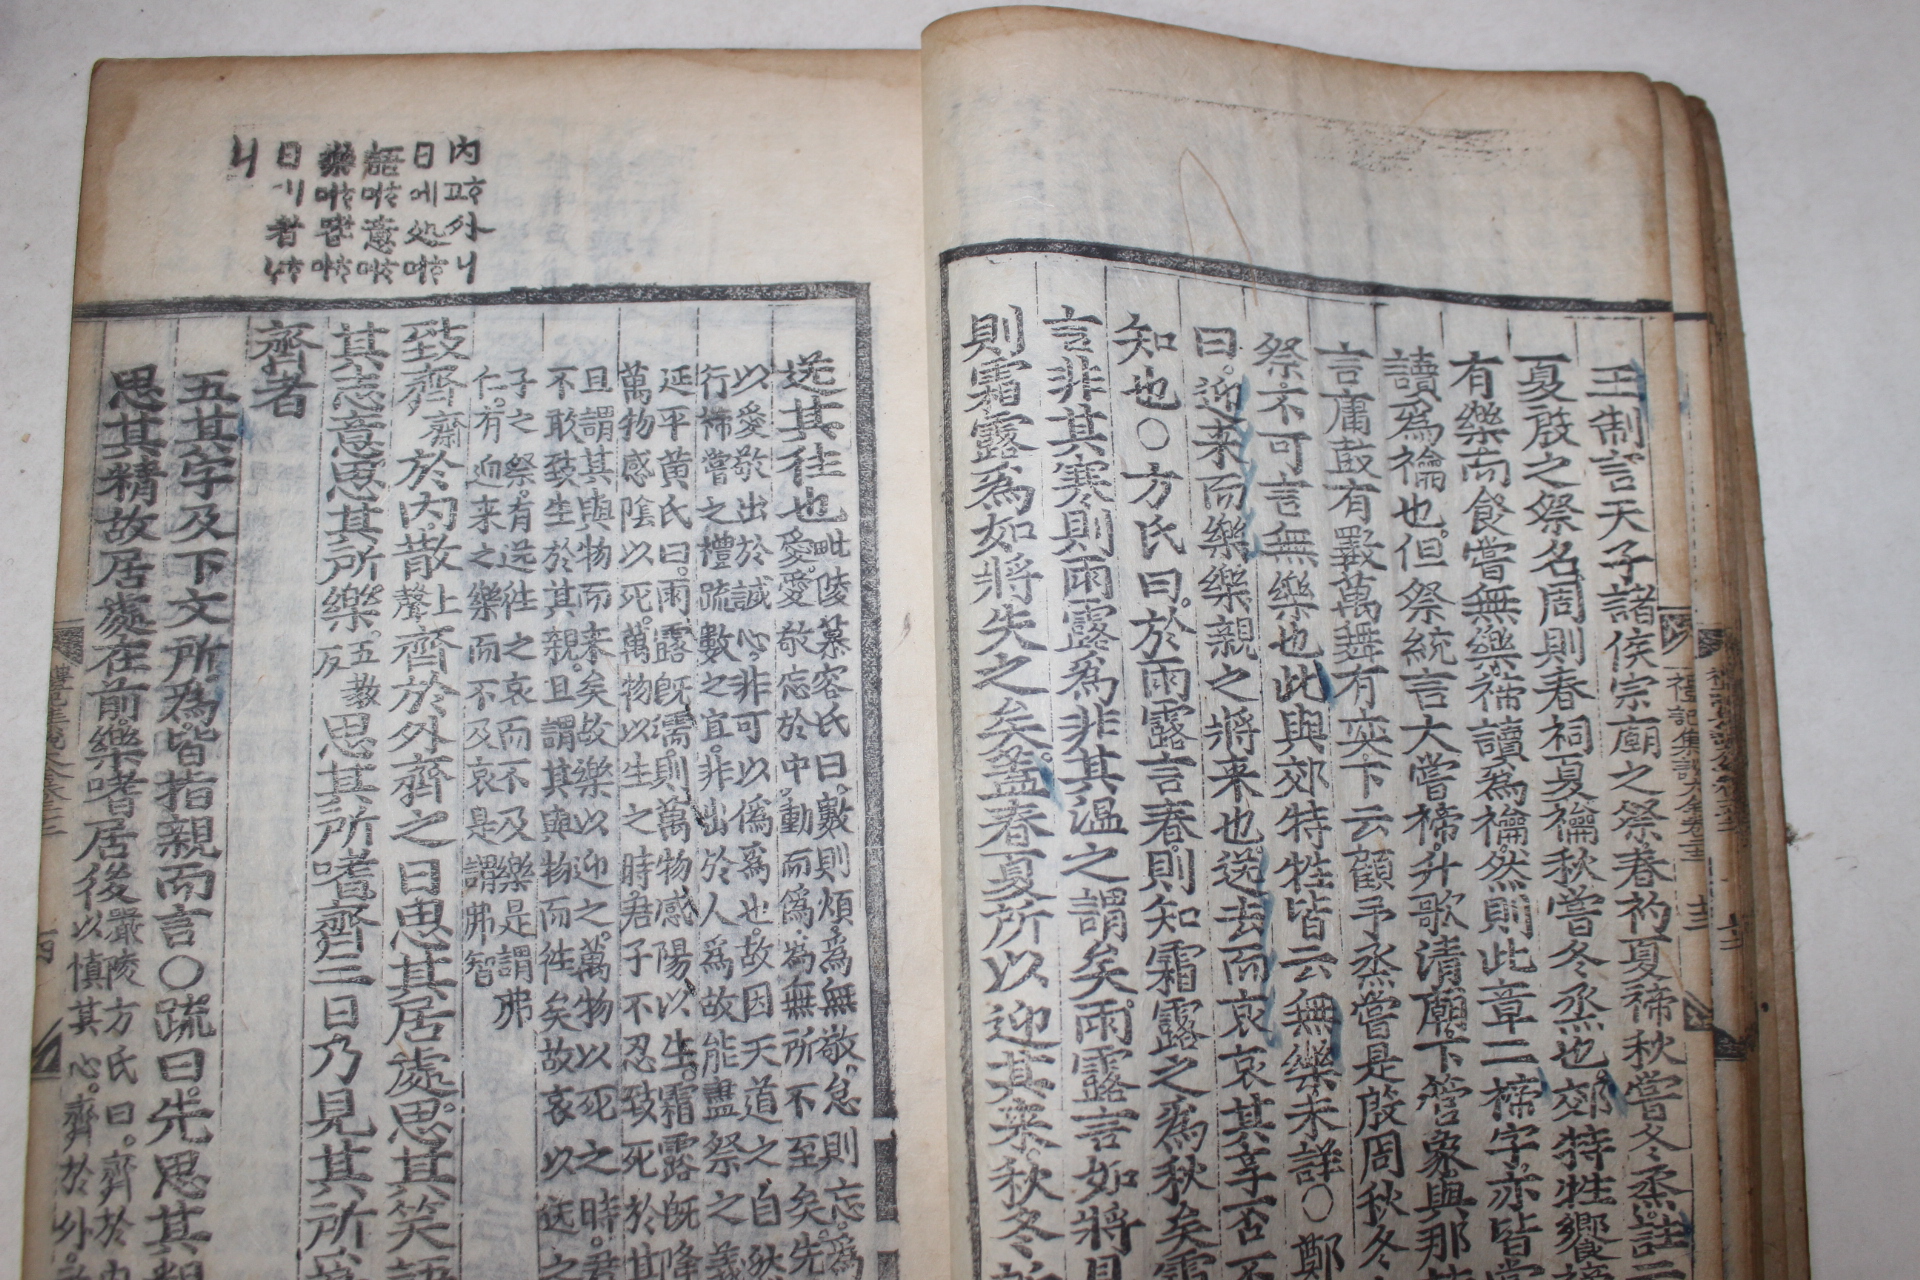 王制言天子諸侯宗廟之祭春礿夏禘秋嘗冬烝註
夏殷之祭名周則春祠夏禴秋嘗冬烝也郊特牲饗禘
有樂而食嘗無樂禘讀爲禴然則此章二禘字亦皆當
讀爲禴也但祭統言大嘗禘升歌清廟下管象與那
言庸鼓有斁萬舞有奕下云顧予烝嘗是殷周秋冬
祭不可言無樂也此與郊特牲皆云無樂未詳○鄭
曰迎来而樂樂親之將来也送去而哀哀其享否不
知也○方氏曰於雨露言春則知霜露之爲秋矣霜
言非其寒則雨露爲非其温之謂矣雨露言如將見
則霜露爲如將失之矣盖春夏所以迎其来秋冬所
禮記集說大全卷之
內ᄒᆞ고外니
日에処ᄒᆞ며
語ᄒᆞ며意ᄒᆞ며
樂ᄒᆞ며嗜ᄒᆞ며
日이者
니
送其往也毗陵慕容氏曰數則煩爲無敬怠則忘爲
愛愛敬忘於中動而僞爲無所不至矣先
以愛敬出於誠心非可以僞爲也故因天道之自然
行禘嘗之禮疏數之宜非出於人爲故能盡祭之義
延平黄氏曰雨露旣濡則萬物感陽以生霜露旣降
萬物感陰以死萬物以生之時君子不忍致死於其
且謂其與物而来矣故樂以迎之萬物以死之時君
不敢致生於其親且謂其與物而徃矣故哀以送之
子之祭有送徃之哀而不及樂是謂弗
仁有迎来之樂而不及哀是謂弗智
致齊齋於內散上聲齊於外齊之日思其居處思其笑語
其志意思其所樂五教反思其所嗜齊三日乃見其所爲
齊者
五其字及下文所爲皆指親而言○疏曰先思其
思其精故居處在前樂嗜居後嚴陵方氏曰齊於
以慎其心齊於外